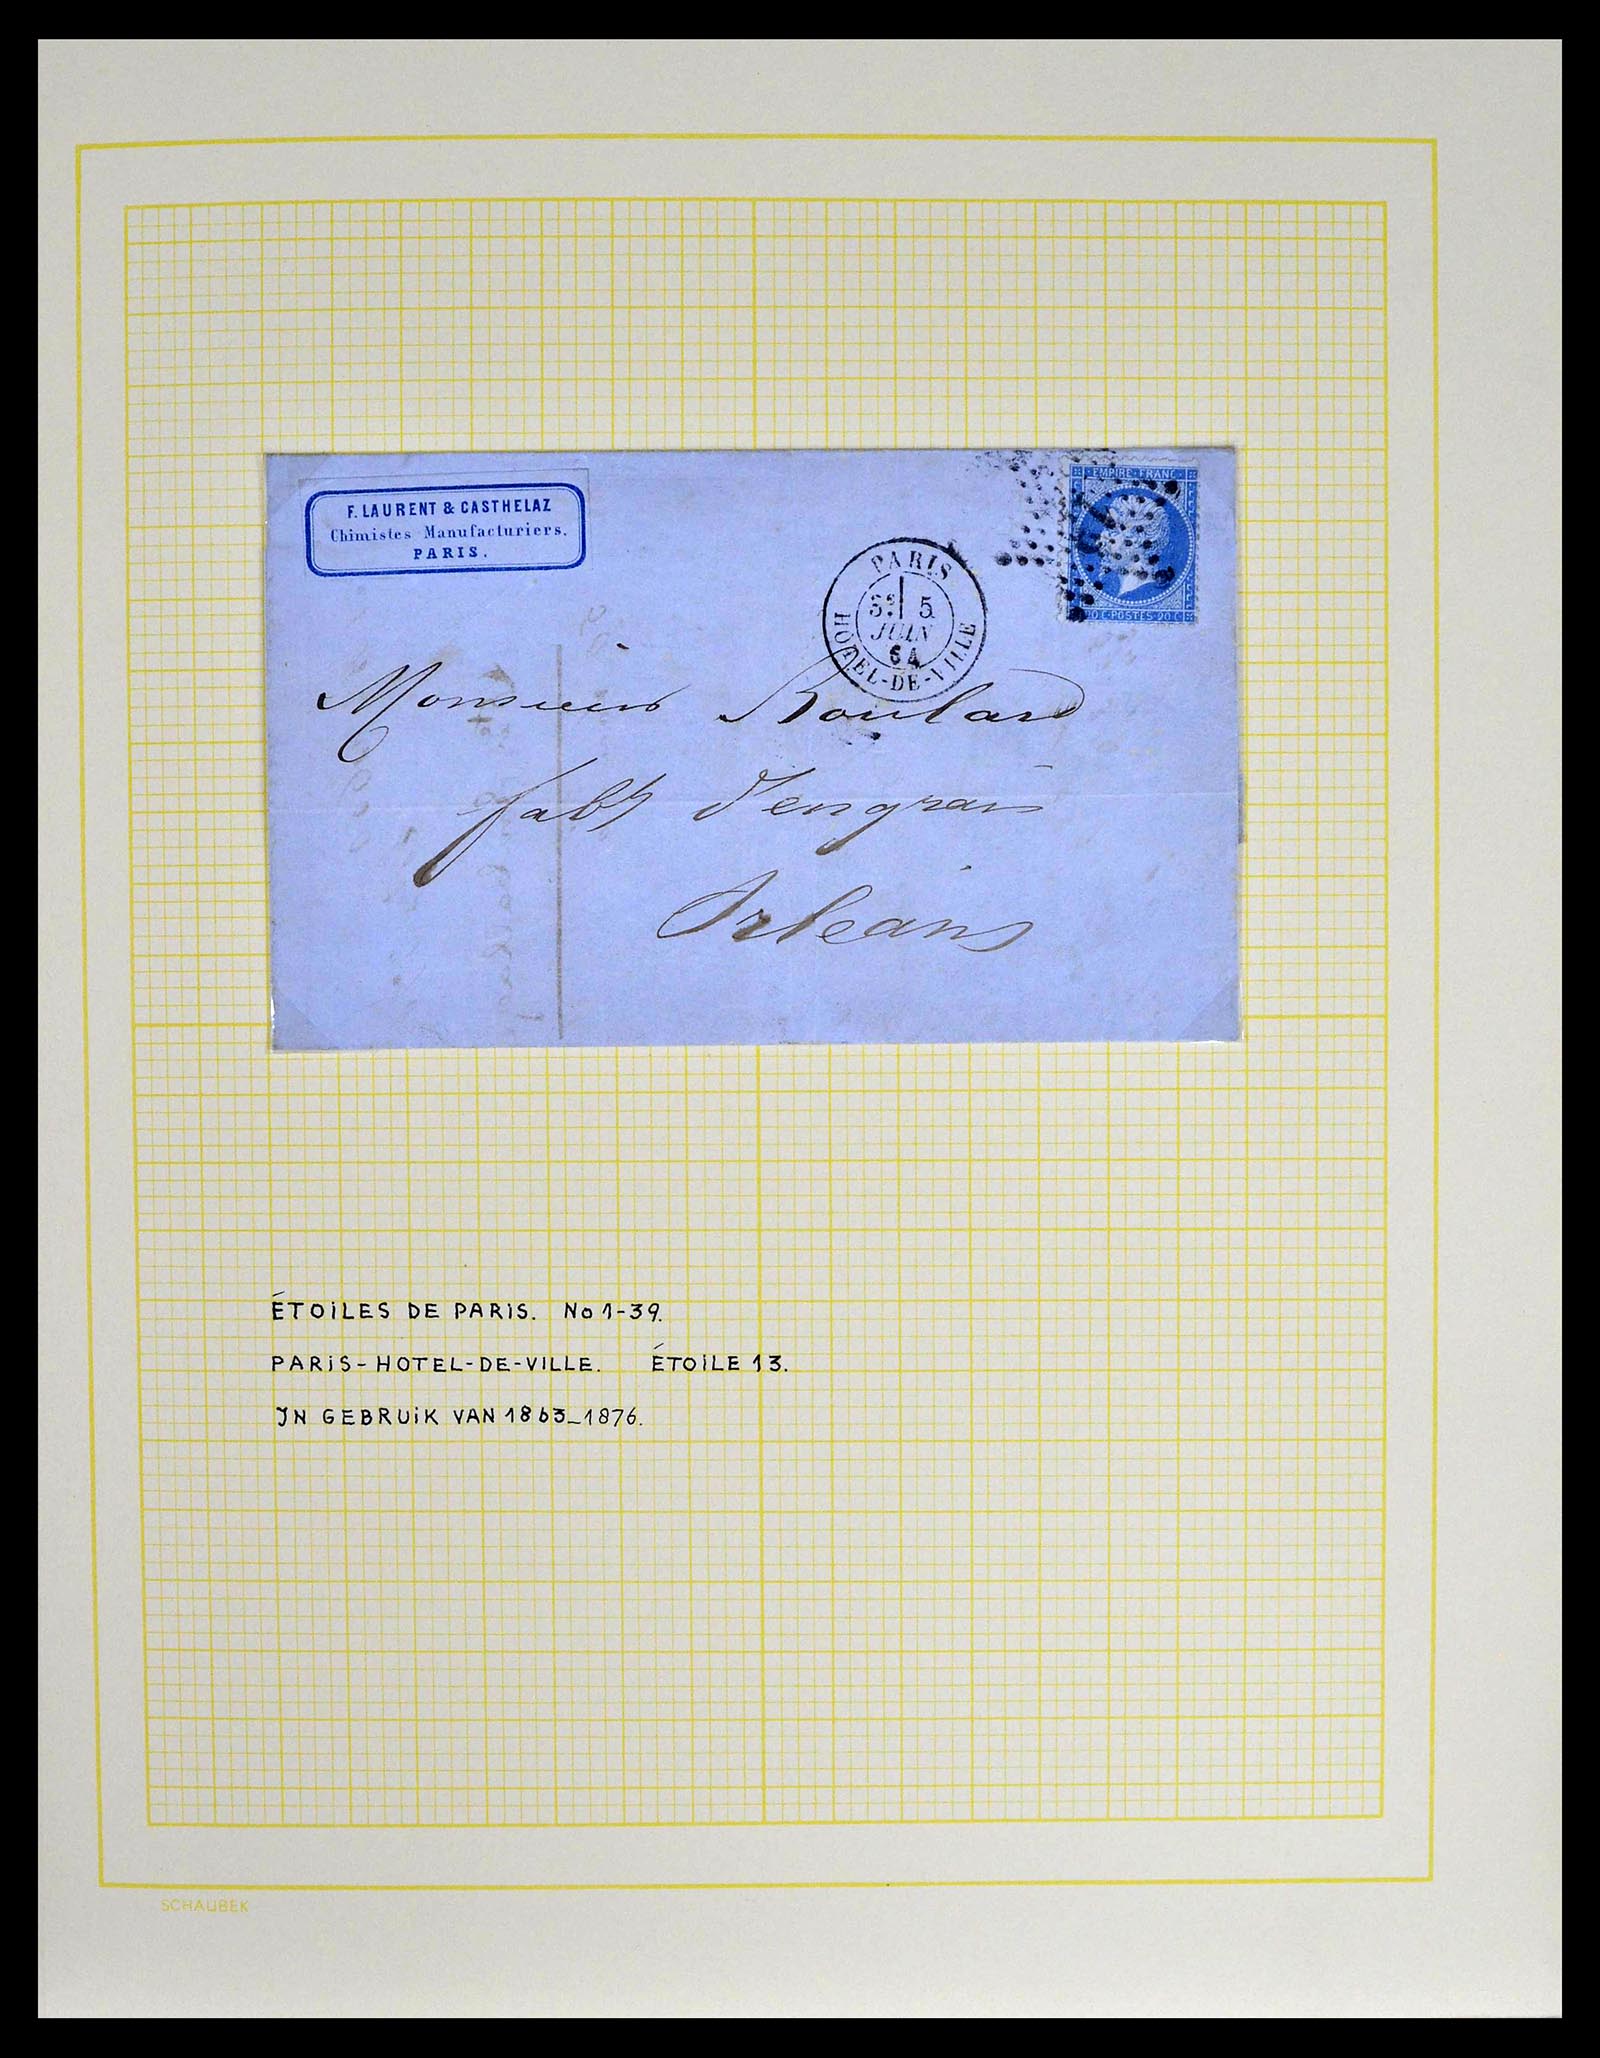 F. LAURENT & CASTHELAZ
Chimistes Manufacturiers.
PARIS.
EMPIRE·FRANC·
20 C·POSTES·20 C
PARIS
5
JUIN
64
HÔTEL-DE-VILLE
Monsieur Boulard
fabt d'engrais
Orléans
ÉTOILES DE PARIS. No 1-39.
PARIS-HOTEL-DE-VILLE. ÉTOILE 13.
IN GEBRUIK VAN 1863-1876.
SCHAUBEK